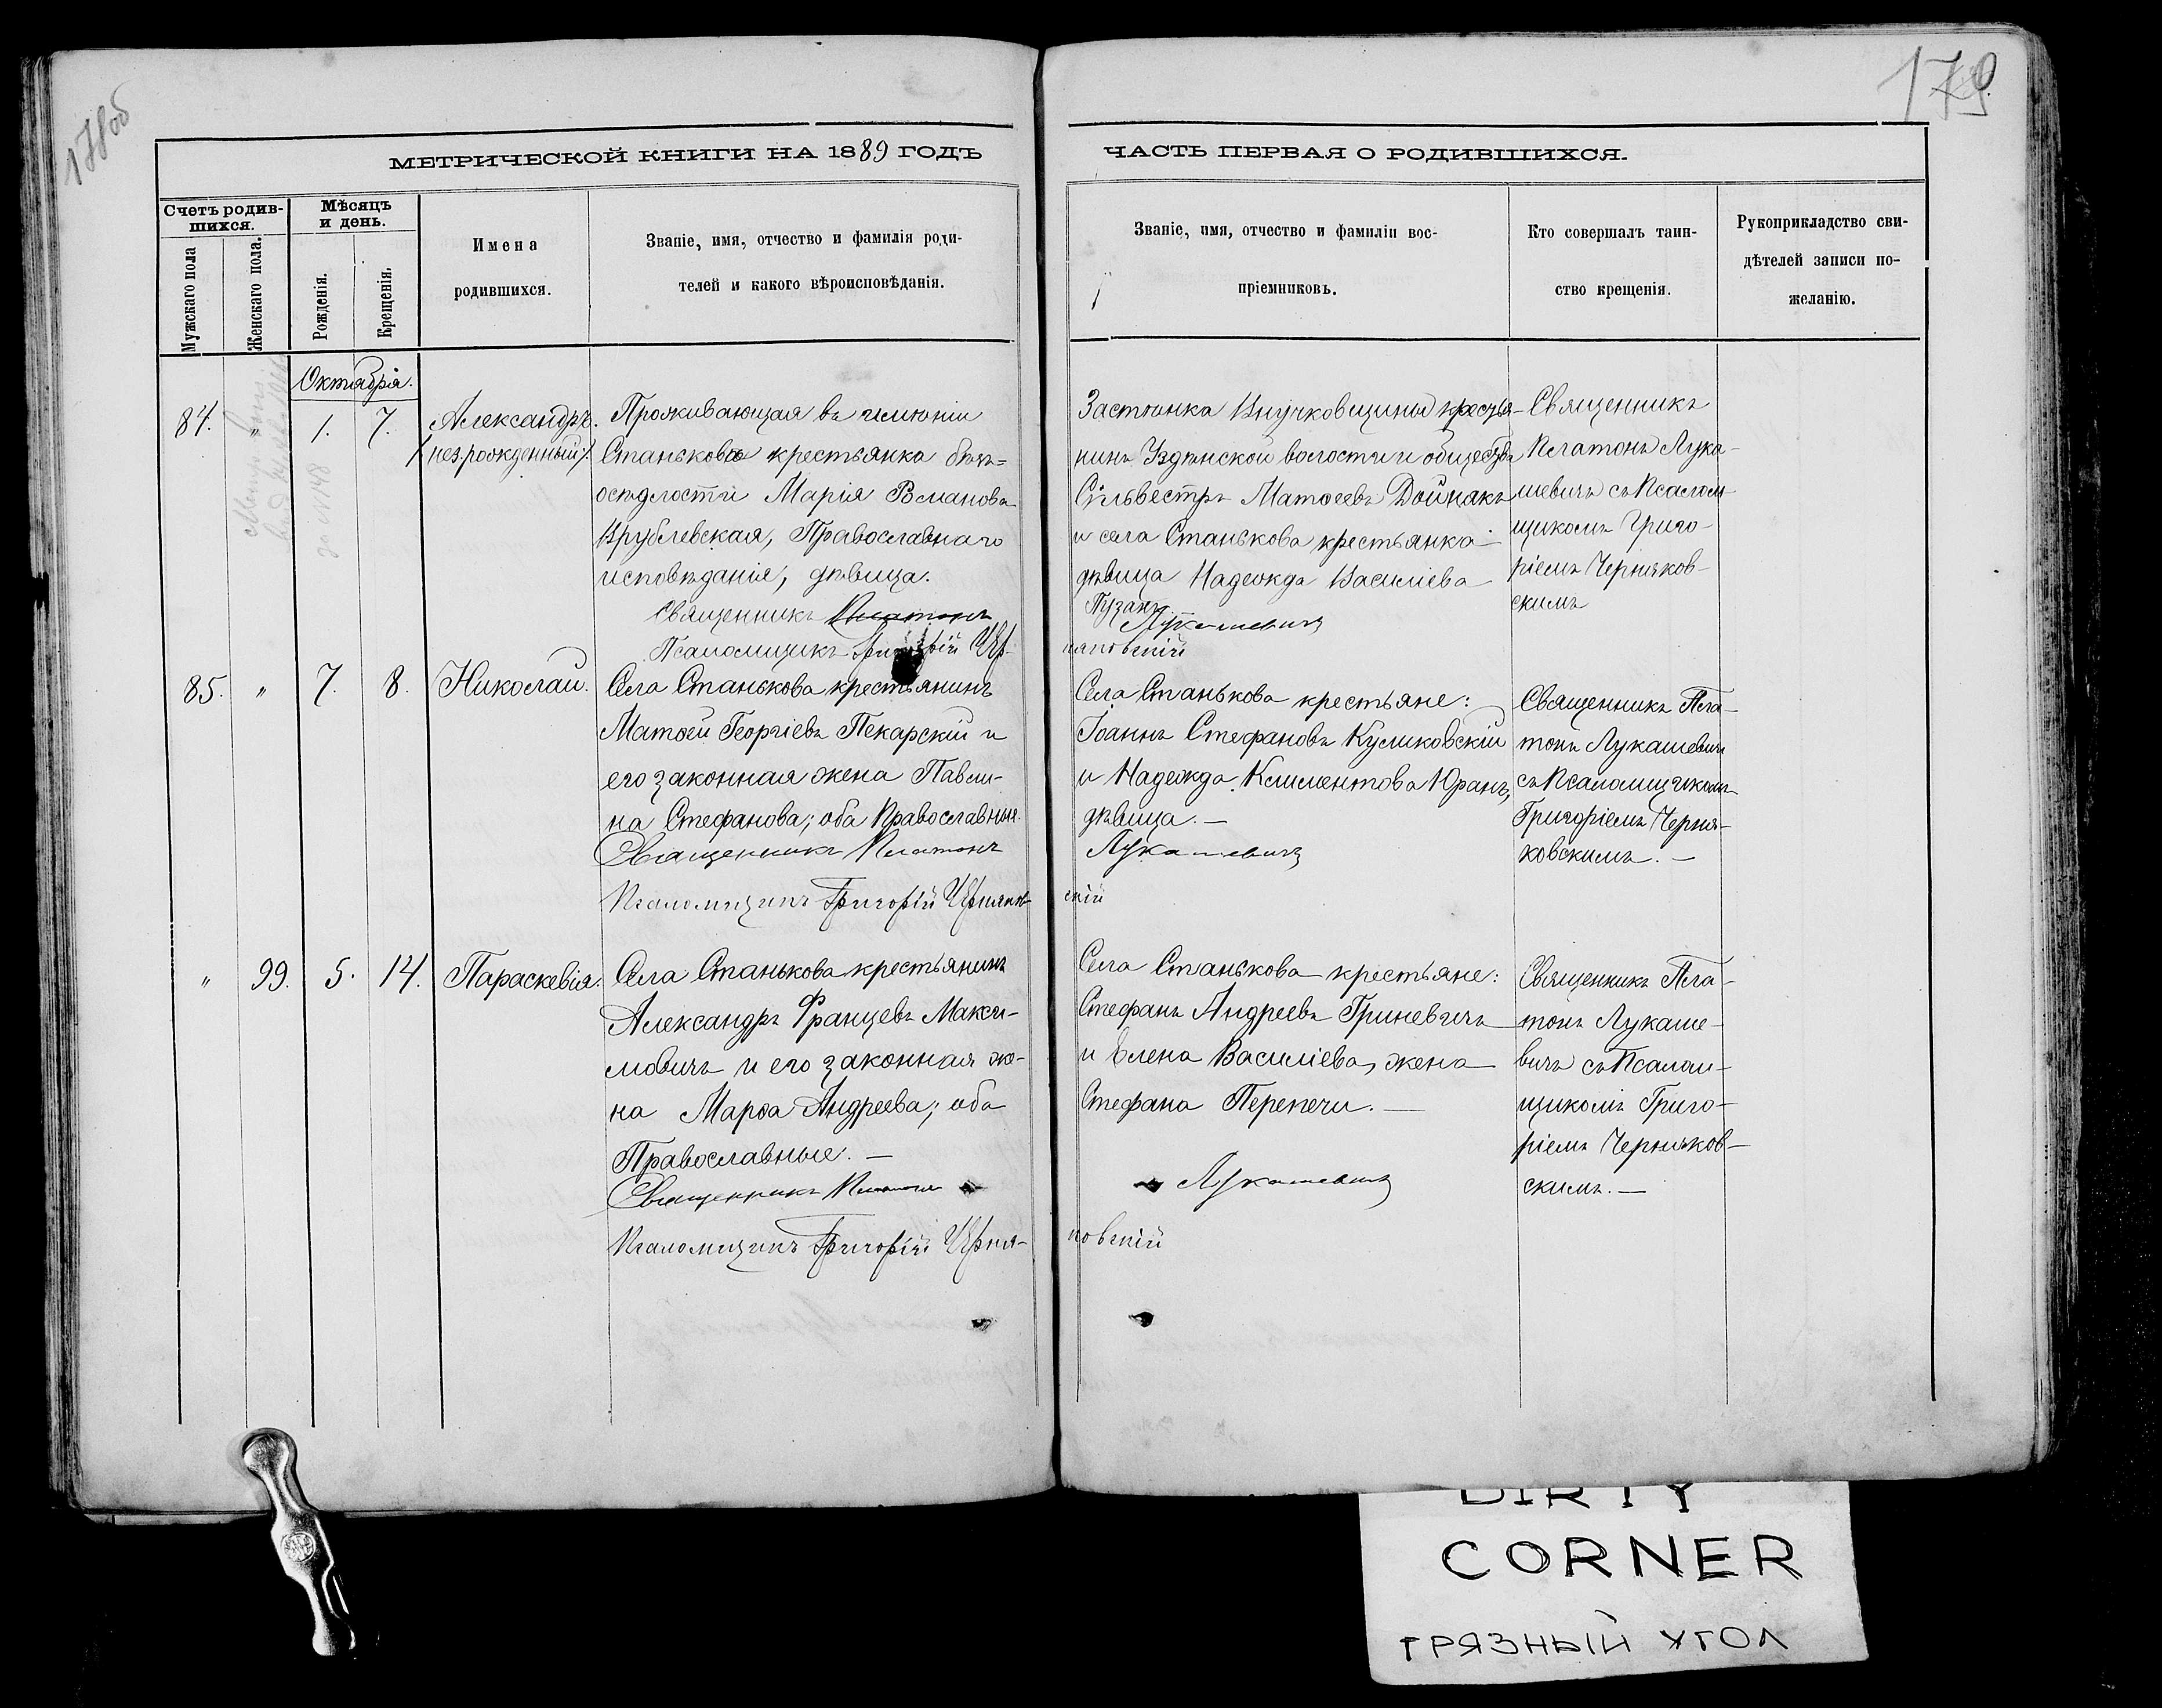 178об
179.
МЕТРИЧЕСКОЙ КНИГИ НА 1889 ГОДЪ
ЧАСТЬ ПЕРВАЯ О РОДИВШИХСЯ.
Счетъ родив-
шихся.
Мужскаго пола
Женскаго пола.
Мѣсяцъ
и день.
Рожденія.
Крещенія.
Имена
родившихся.
Званіе, имя, отчество и фамилія роди-
телей и какого вѣроисповѣданія.
Званіе, имя, отчество и фамиліи вос-
пріемниковъ.
Кто совершалъ таин-
ство крещенія.
Рукоприкладство сви-
дѣтелей записи по-
желанію.
Октября.
84. " 1. 7.
Александръ.
/незрожденный/.
Проживающая въ имѣніи
Станьковѣ крестьянка
осѣдлости Марія Романова
Врублевская, Православнаго
исповѣданія, дѣвица.
Священникъ Платонъ
Псаломщикъ Григорій Чер-
Застѣнка Внучковщины крестья-
нинъ Уздѣнской волости и общества
Сільвестръ Матѳеевъ Дойнакъ
и села Станькова крестьянка
дѣвица Надежда Василіева
Пузанъ
Лукашевичъ
няковскій
Священникъ
Платонъ Лука-
шевичъ съ Псалом-
щикомъ Григо-
ріемъ Черняков-
скимъ
85. " 7. 8.
Николай.
Села Станькова крестьянинъ
Матѳей Георгіевъ Пекарскій и
его законная жена Павли-
на Стефанова; оба Православные.
Священникъ Платонъ
Псаломщикъ Григорій Черняков-
Села Станькова крестьяне:
Іоаннъ Стефановъ Куликовскій
и Надежда Климентова Юранъ,
дѣвица. —
Лукашевичъ
скій
Священникъ Пла-
тонъ Лукашевичъ
съ Псаломщикомъ
Григоріемъ Черня-
ковскимъ. —
" 99. 5. 14.
Параскевія.
Села Станькова крестьянинъ
Александръ Францевъ Макси-
мовичъ и его законная же-
на Марѳа Андреева; оба
Православные. —
Священникъ Платонъ
Псаломщикъ Григорій Черня-
Села Станькова крестьяне:
Стефанъ Андреевъ Гриневичъ
и Елена Василіева, жена
Стефана Перепечи. —
Лукашевичъ
ковскій
Священникъ Пла-
тонъ Лукаше-
вичъ съ Псалом-
щикомъ Григо-
ріемъ Черняков-
скимъ. —
DIRTY
CORNER
ГРЯЗНЫЙ УГОЛ